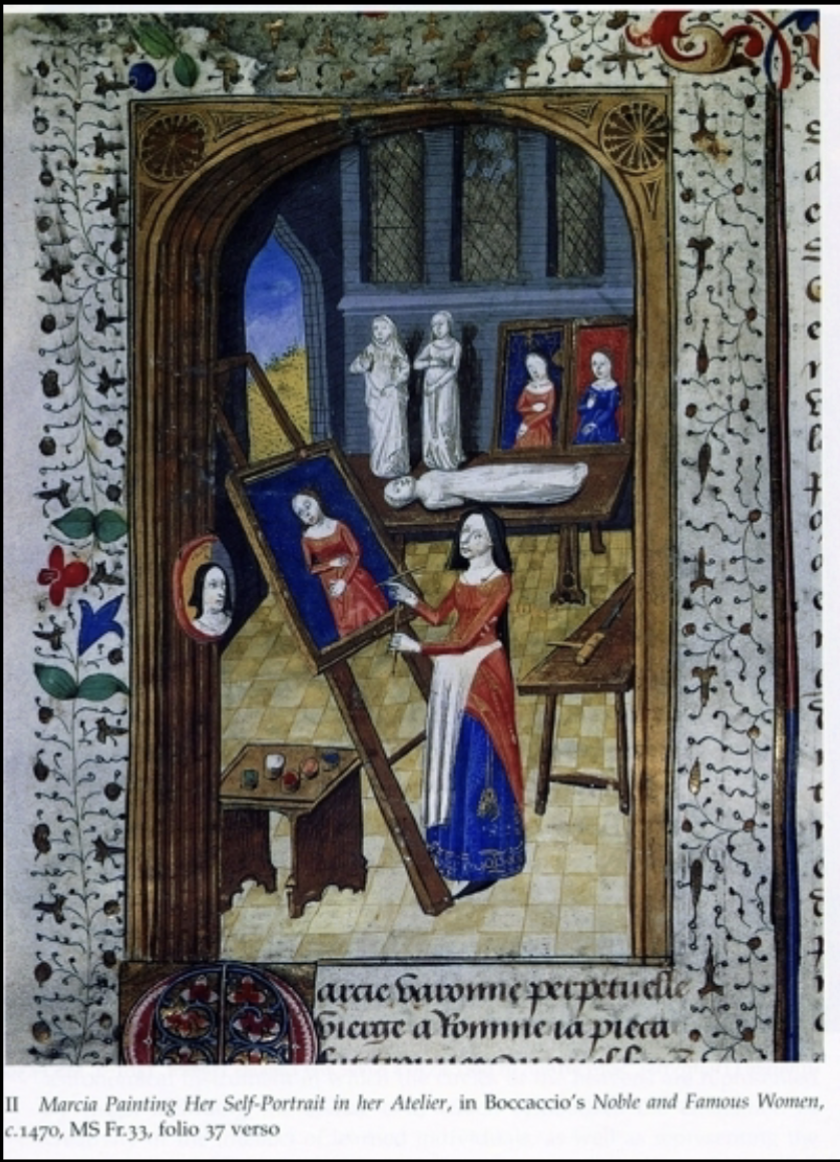 arcie baronne perpetuelle
vierge a Romme ia pieca
fut
II Marcia Painting Her Self-Portrait in her Atelier, in Boccaccio's Noble and Famous Women,
c.1470, MS Fr.33, folio 37 verso